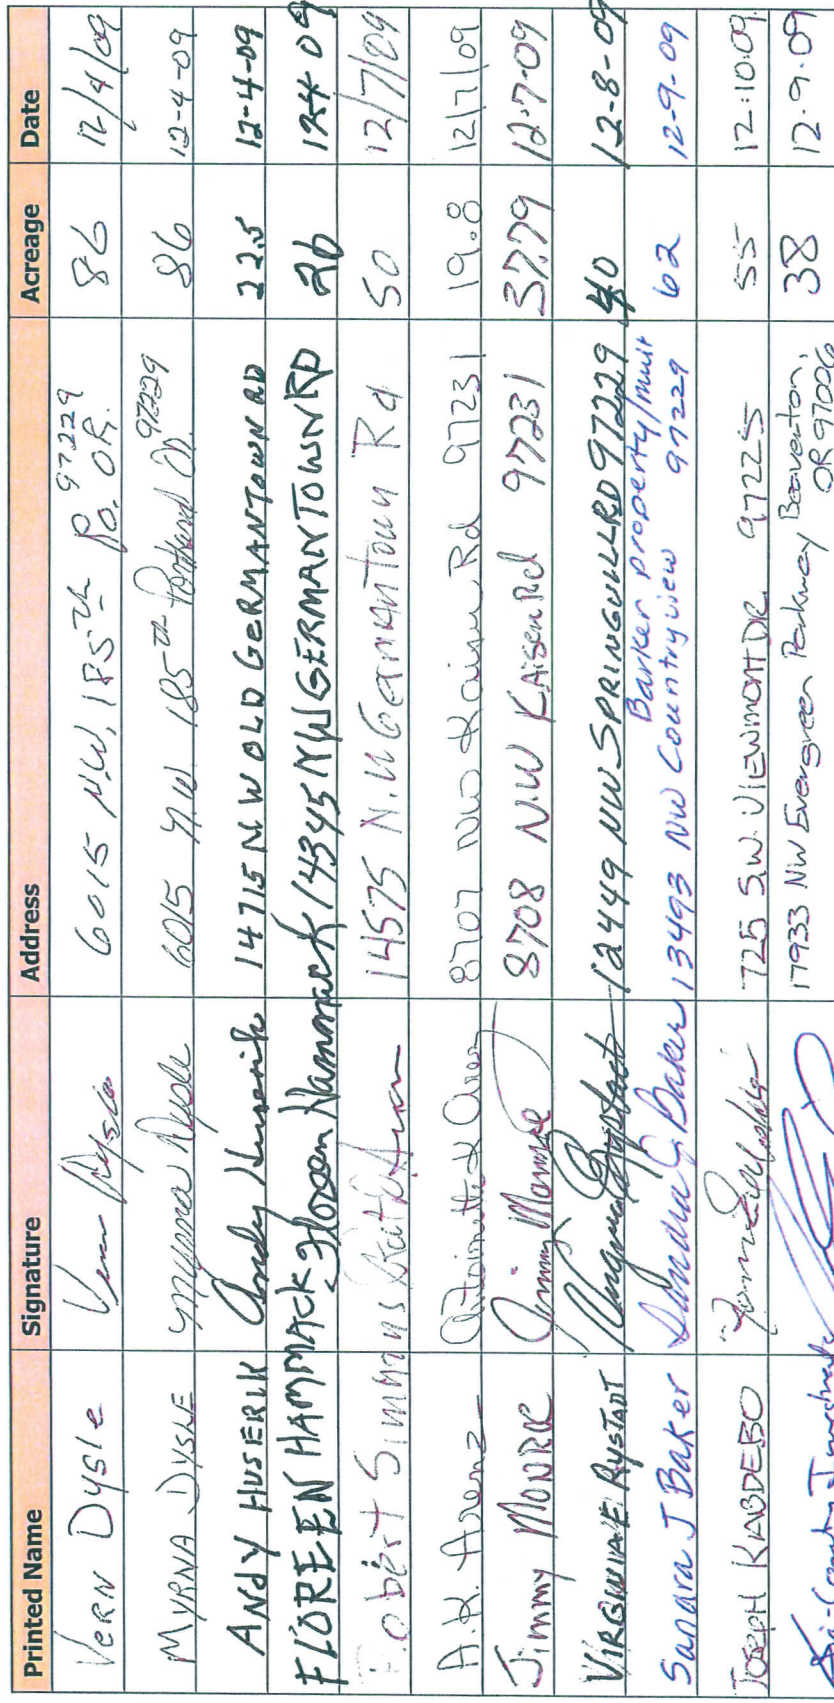 Printed Name Signature Address Acreage Date
Vern Dysle Vern Dysle 6015 N.W. 185th Po. OR. 97229 86 12/4/09
Myrna Dysle Myrna Dysle 6015 NW 185th Portland OR 97229 86 12-4-09
ANDY HUSERIK Andy Huserik 14715 NW OLD GERMANTOWN RD 22.5 12-4-09
FLOREEN HAMMACK Floreen Hammack 14345 NW GERMANTOWN RD 26 12-4-09
Robert Simmons 14575 N.W Germantown Rd 50 12/7/09
A.K. Arenz 8707 NW Kaiser Rd 97231 19.8 12/7/09
Jimmy MONROE Jimmy Monroe 8708 N.W KAiser Rd 97231 37.79 12-7-09
VIRGINIA E. RYSTADT 12449 NW SPRINGVILLE RD 97229 40 12-8-09
Sandra J Baker Sandra J Baker 13493 NW Countryview 97229 Barker property/mult 62 12-9-09
JOSEPH KABDEBO 725 S.W. VIEWMONT DR. 97225 55 12.10.09
17933 NW Evergreen Parkway Beaverton, OR 97006 38 12.9.09